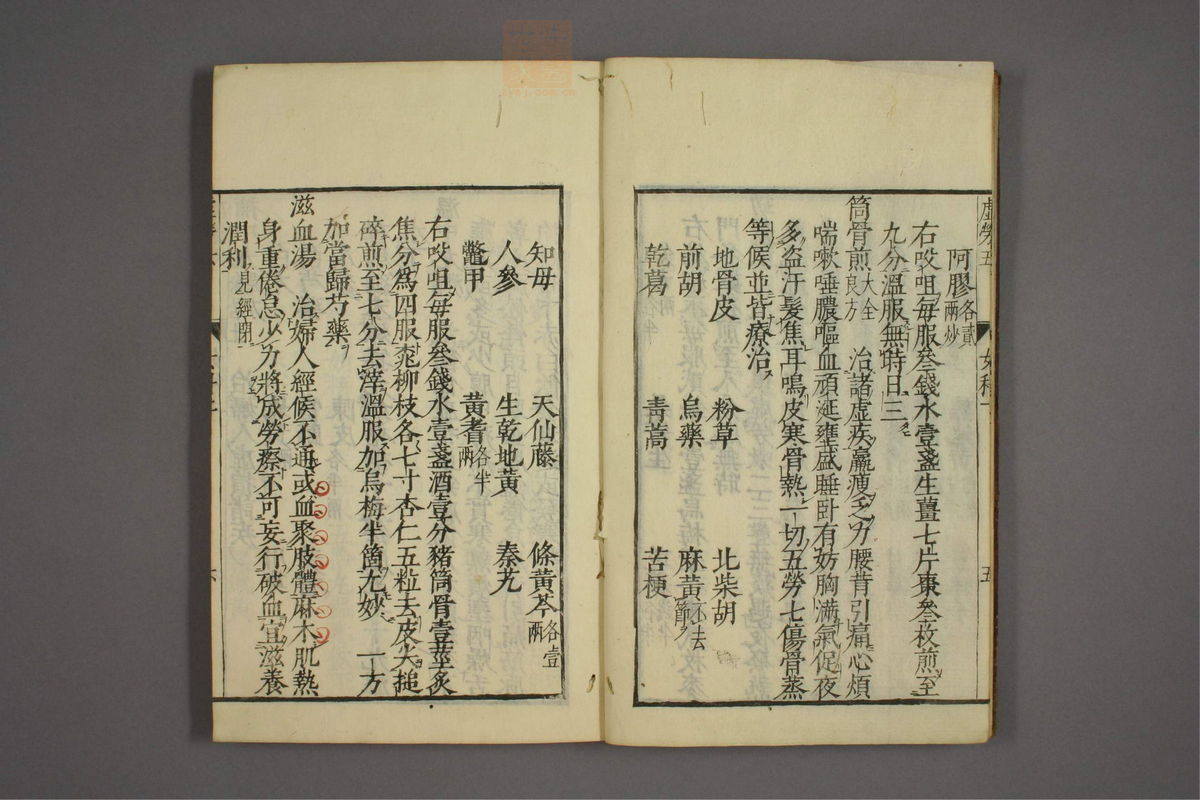 阿膠各貳兩炒
右㕮咀每服叄錢水壹盞生薑七片棗叄枚煎至
九分溫服無時日三
筒骨煎大全良方 治諸虛疾羸瘦乏力腰背引痛心煩
喘嗽唾膿嘔血頑涎壅盛睡卧有妨胸滿氣促夜
多盗汗髮焦耳鳴皮寒骨熱一切五勞七傷骨蒸
等候並皆療治
地骨皮 粉草 北柴胡
前胡 烏藥 麻黃不去節
乾葛 青蒿 苦梗
知母 天仙藤 條黃芩各壹兩
人參 生乾地黃 秦艽
鱉甲 黃耆各半兩
右㕮咀每服叄錢水壹盞酒壹分豬筒骨壹莖炙
焦分爲四服桃柳枝各七寸杏仁五粒去皮尖搥
碎煎至七分去滓溫服加烏梅半箇尤妙 一方
加當歸芍藥
滋血湯 治婦人經候不通或血聚肢體麻木肌熱
身重倦怠少力將成勞瘵不可妄行破血宜滋養
潤利見經閉
虛勞五
女科一
五